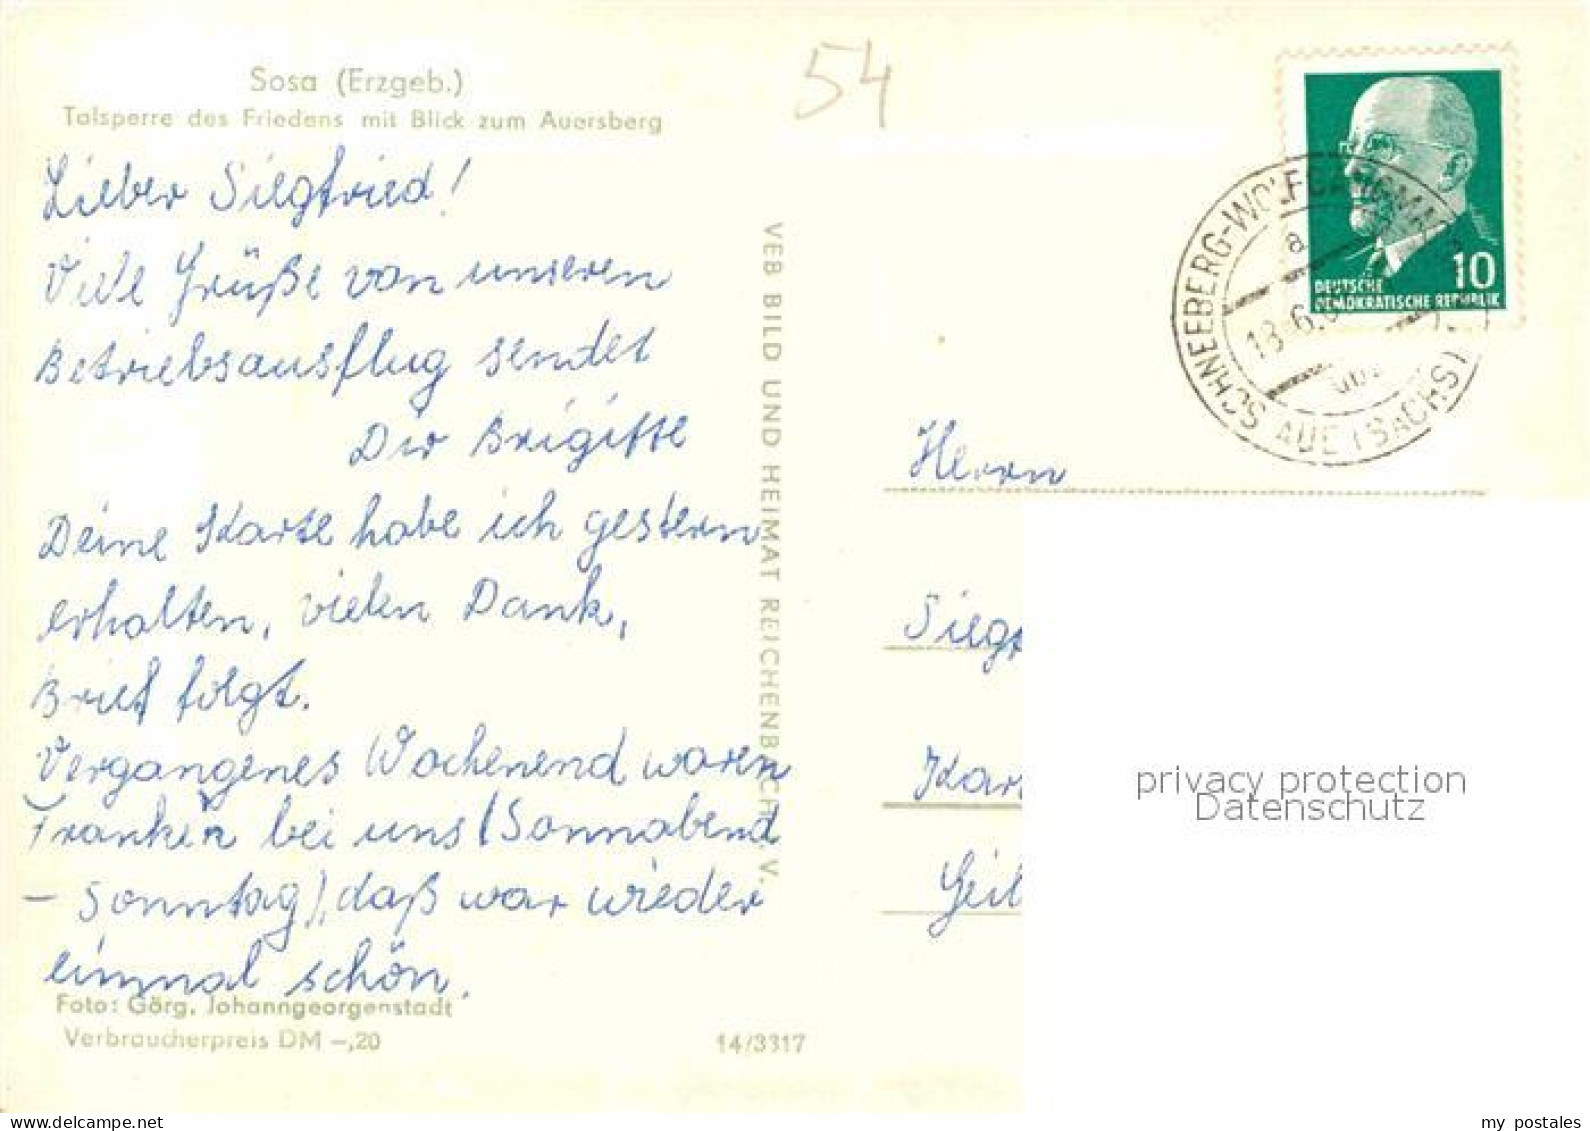 Sosa (Erzgeb.)
Talsperre des Friedens mit Blick zum Auersberg
54
Lieber Siegfried!
Viele Grüße von unseren
Betriebsausflug sendet
Dir Brigitte
Deine Karte habe ich gestern
erhalten, vielen Dank,
Brief folgt.
Vergangenes Wochenend waren
bei uns (Sonnabend
- Sonntag), daß war wieder
einmal schön.
Foto: Görg, Johanngeorgenstadt
Verbraucherpreis DM -,20
14/3317
VEB BILD UND HEIMAT REICHENBACH I. V.
DEUTSCHE
DEMOKRATISCHE REPUBLIK
10
SCHNEEBERG-WOLFGANG
AUE (SACHS)
a
18.6.
Herrn
Siegf
Kar
Geil
privacy protection
Datenschutz
my postales